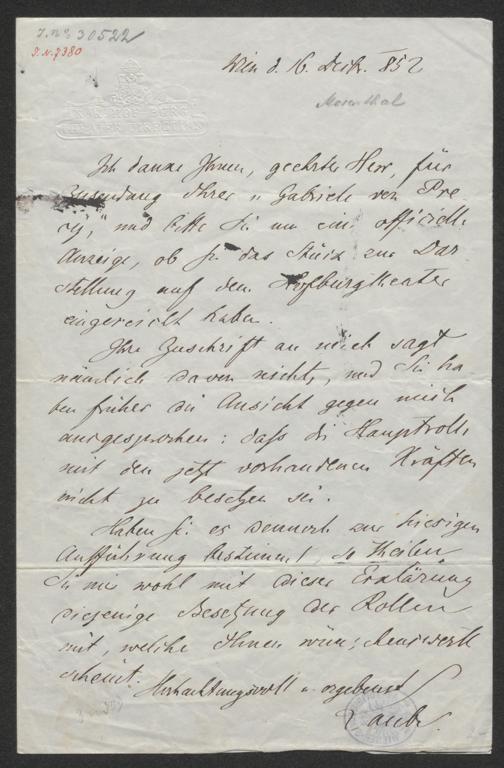 J. No 30522
J. N. 7380
Wien d. 16. Decbr. 852
Mosenthal
Ich danke Ihnen, geehrter Herr, für
Zusendung Ihrer „Gabriele von Pre
cy," und bitte Sie um eine officielle
Anzeige, ob Sie das Stück zur Dar
stellung auf dem Hofburgtheater
eingereicht haben.
Ihre Zuschrift an mich sagt
nämlich davon nichts, und Sie ha
ben früher die Ansicht gegen mich
ausgesprochen: daß die Hauptrolle
mit den jetzt vorhandenen Kräften
nicht zu besetzen sei.
Haben Sie es dennoch zur hiesigen
Aufführung bestimmt, so theilen
Sie mir wohl mit dieser Erklärung
diejenige Besetzung der Rollen
mit, welche Ihnen wünschenswerth
scheint.
Hochachtungsvoll u. ergebenst
Laube